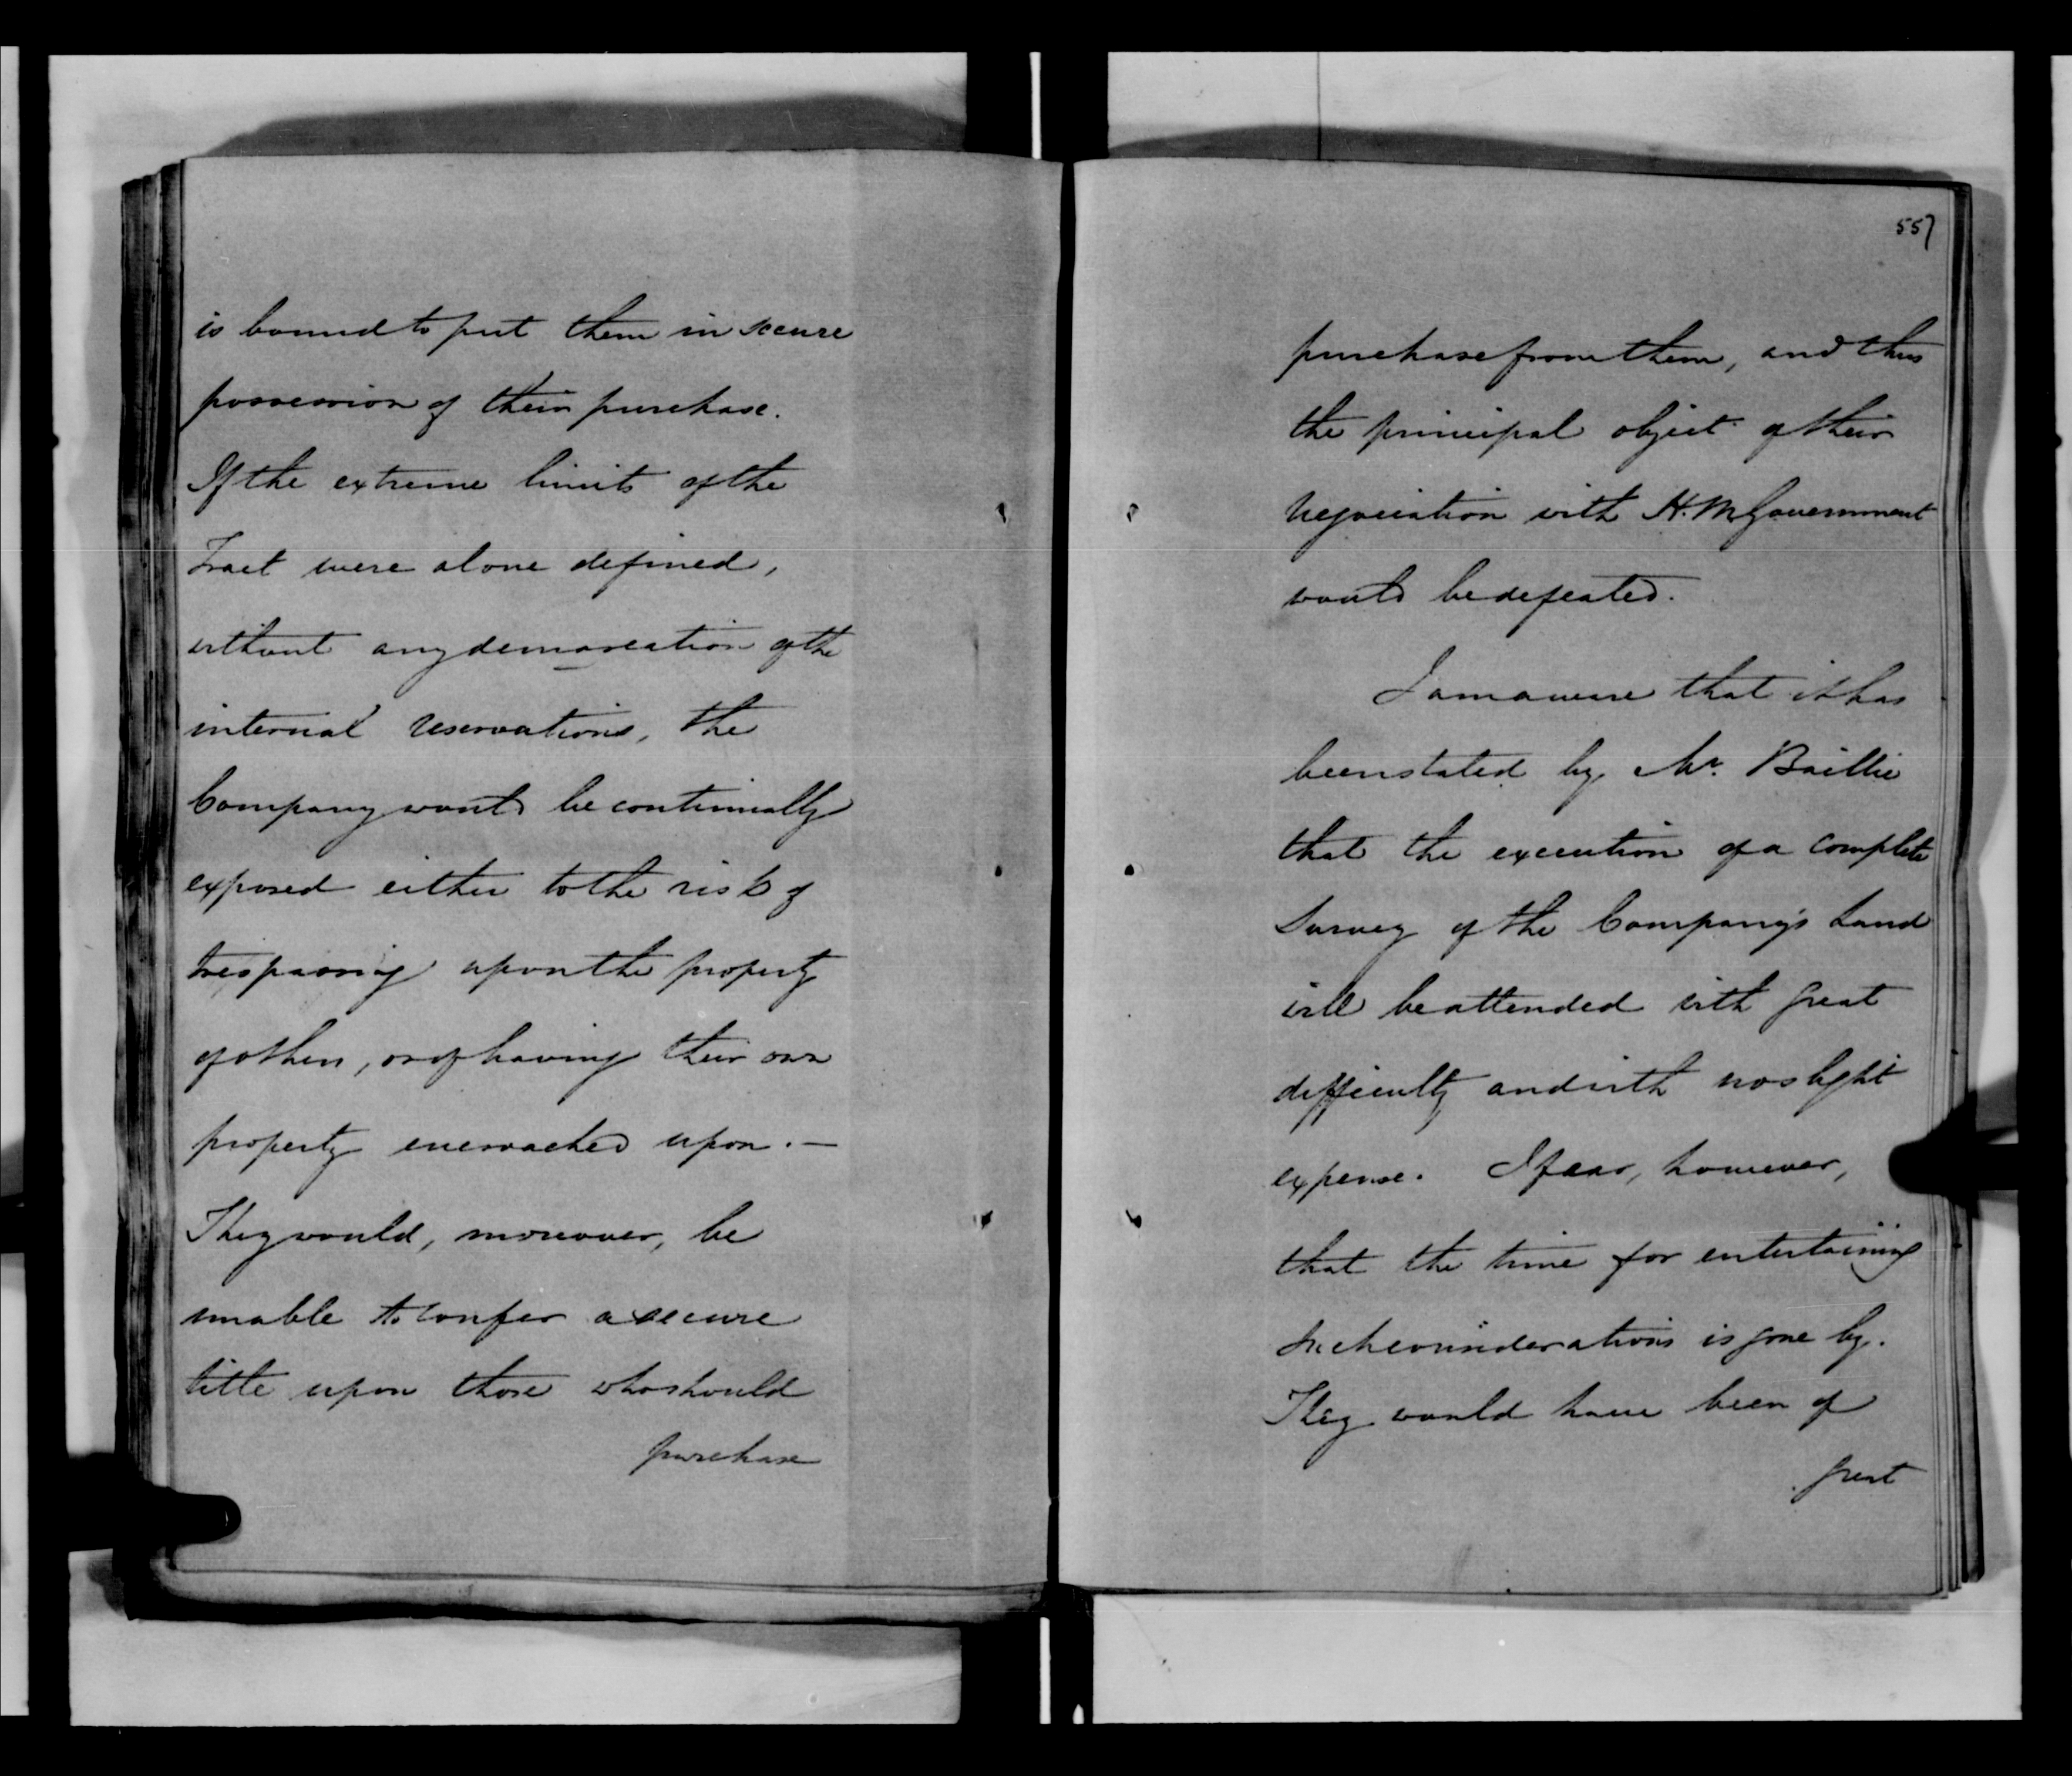 is bound to put them in secure
possession of their purchase.
If the extreme limits of the
Tract were alone defined,
without any demarcation of the
internal reservations, the
Company would be continually
exposed either to the risk of
trespassing upon the property
of others, or of having their own
property encroached upon. —
They would, moreover, be
unable to confer a secure
title upon those who should
purchase
557
purchase from them, and thus
the principal object of their
negociation with H. M. Government
would be defeated.
I am aware that it has
been stated by Mr. Baillie
that the execution of a complete
Survey of the Company's Land
will be attended with great
difficulty and with no slight
expense. I fear, however,
that the time for entertaining
such considerations is gone by.
They would have been of
great